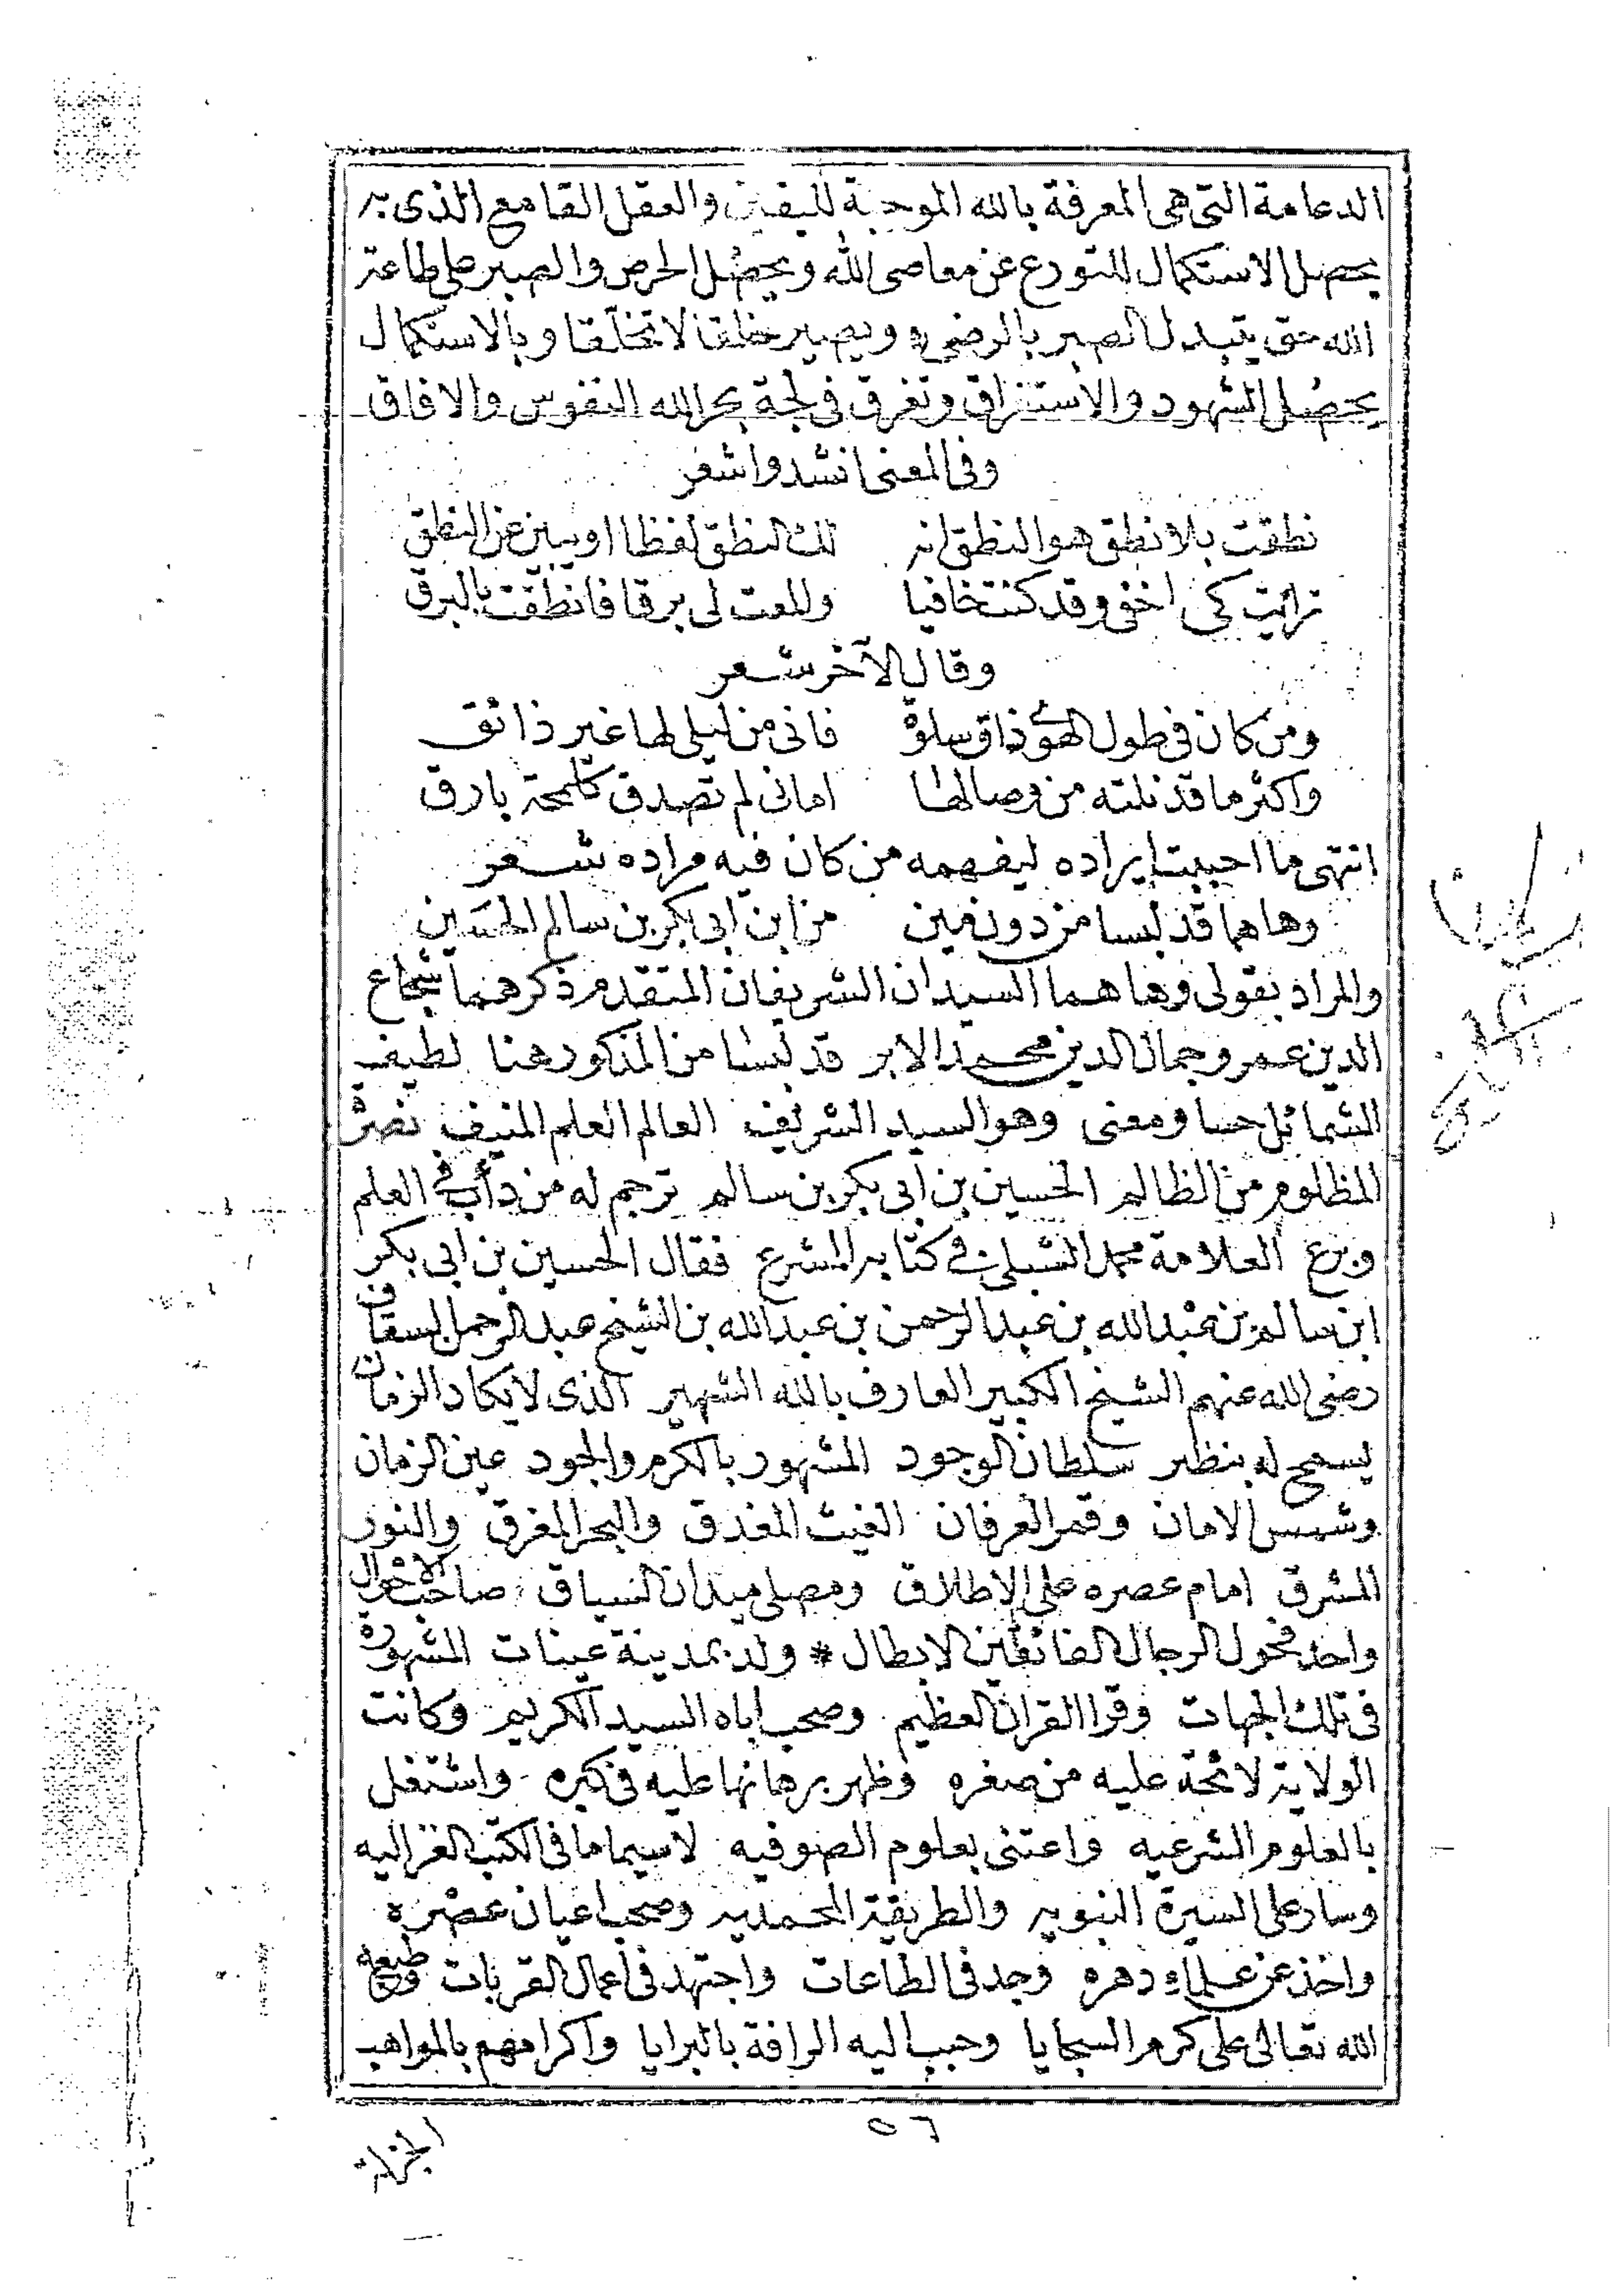 الدعامة التى هى المعرفة بالله الموجبة لليقين والعقل القامع الذى به
يحصل الاستكمال للتورع عن معاصى الله ويحصُل الحرص والصبر على طاعة
الله حتى يتبدل الصبر بالرضى ويصير خلقا لا تخلّقا وبالاستكمال
يحصُل الشهود والاستغراق وتغرق فى لجة بحر الله النفوس والافاق
وفى المعنى انشدوا شعر
نطقت بلا نطق هو النطق انه لك النطق لفظا او يبين عن النطق
ترائيت كى اخفى وقد كنت خافيا والمعت لى برقا فانطقت بالبرق
وقال الآخر شعر
ومن كان فى طول الهوى ذاق سلوة فانى من ليلى لها غير ذائق
واكثر ما قد نلته من وصالها امانى لم تصدق كلمحة بارق
انتهى ما احببت ايراده ليفهمه من كان فيه مراده شعر
وها هما قد لبسا من دون مين من ابن ابى بكر بن سالم الحسين
والمراد بقولى وها هما السيدان الشريفان المتقدم ذكرهما شجاع
الدين عمر وجمال الدين محمد الابر قد لبسا من المذكور هنا لطيف
الشمائل حسا ومعنى وهو السيد الشريف العالم العلم المنيف نصرة
المظلوم من الظالم الحسين بن ابى بكر بن سالم ترجم له من دأب فى العلم
وبرع العلامة محمد الشبلى فى كتابه المشرع فقال الحسين بن ابى بكر
ابن سالم بن عبد الله بن عبد الرحمن بن عبد الله بن الشيخ عبد الرحمن السقاف
رضى الله عنهم الشيخ الكبير العارف بالله الشهير الذى لا يكاد الزمان
يسمح له بنظير سلطان الوجود المشهور بالكرم والجود عين الزمان
وشمس الامان وقمر العرفان الغيث المغدق والبحر المغرق والنور
المشرق امام عصره على الاطلاق ومصلى ميدان السباق صاحب الاحوال
واحد فحول الرجال الفائقين الابطال * ولد بمدينة عينات المشهورة
فى تلك الجهات وقرا القران العظيم وصحب اباه السيد الكريم وكانت
الولاية لائحة عليه من صغره وظهر برهانها عليه فى كبره واشتغل
بالعلوم الشرعيه واعتنى بعلوم الصوفيه لا سيما ما فى الكتب الغزاليه
وسار على السيرة النبويه والطريقة المحمديه وصحب اعيان عصره
واخذ عن علماء دهره وجد فى الطاعات واجتهد فى اعمال القربات وطبعه
الله تعالى على كرم السجايا وحبب اليه الرافة بالبرايا واكرامهم بالمواهب
٥٦
الجزيله